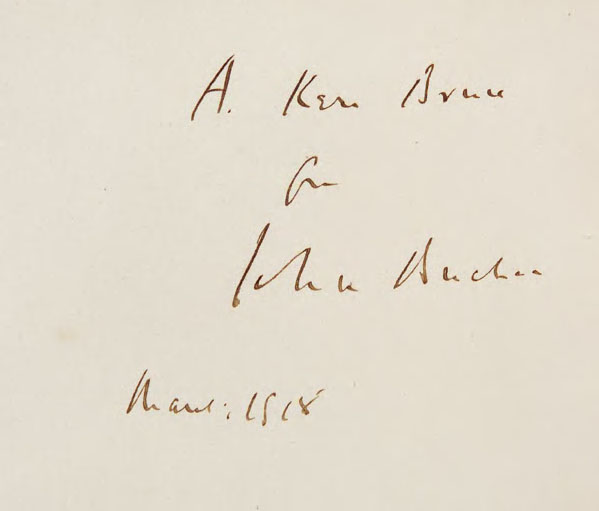 A. Kerr Bruce
from
John Buchan
March: 1918